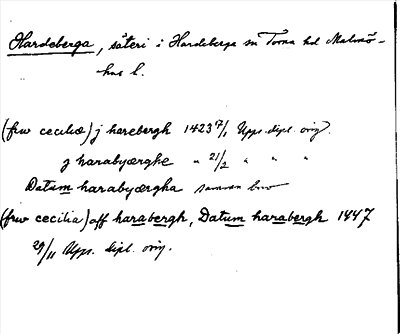 Hardeberga, säteri i Hardeberga sn Torna hd Malmö-
hus l.
(frw cecilie) j harebergh 1423 17/1 Upps. dipl. orig.
j harabyærghe " 21/2 " " "
Datum harabyærgha samma brev
(frw cecilia) aff harabergh, Datum harabergh 1447
29/11 Upps. dipl. orig.